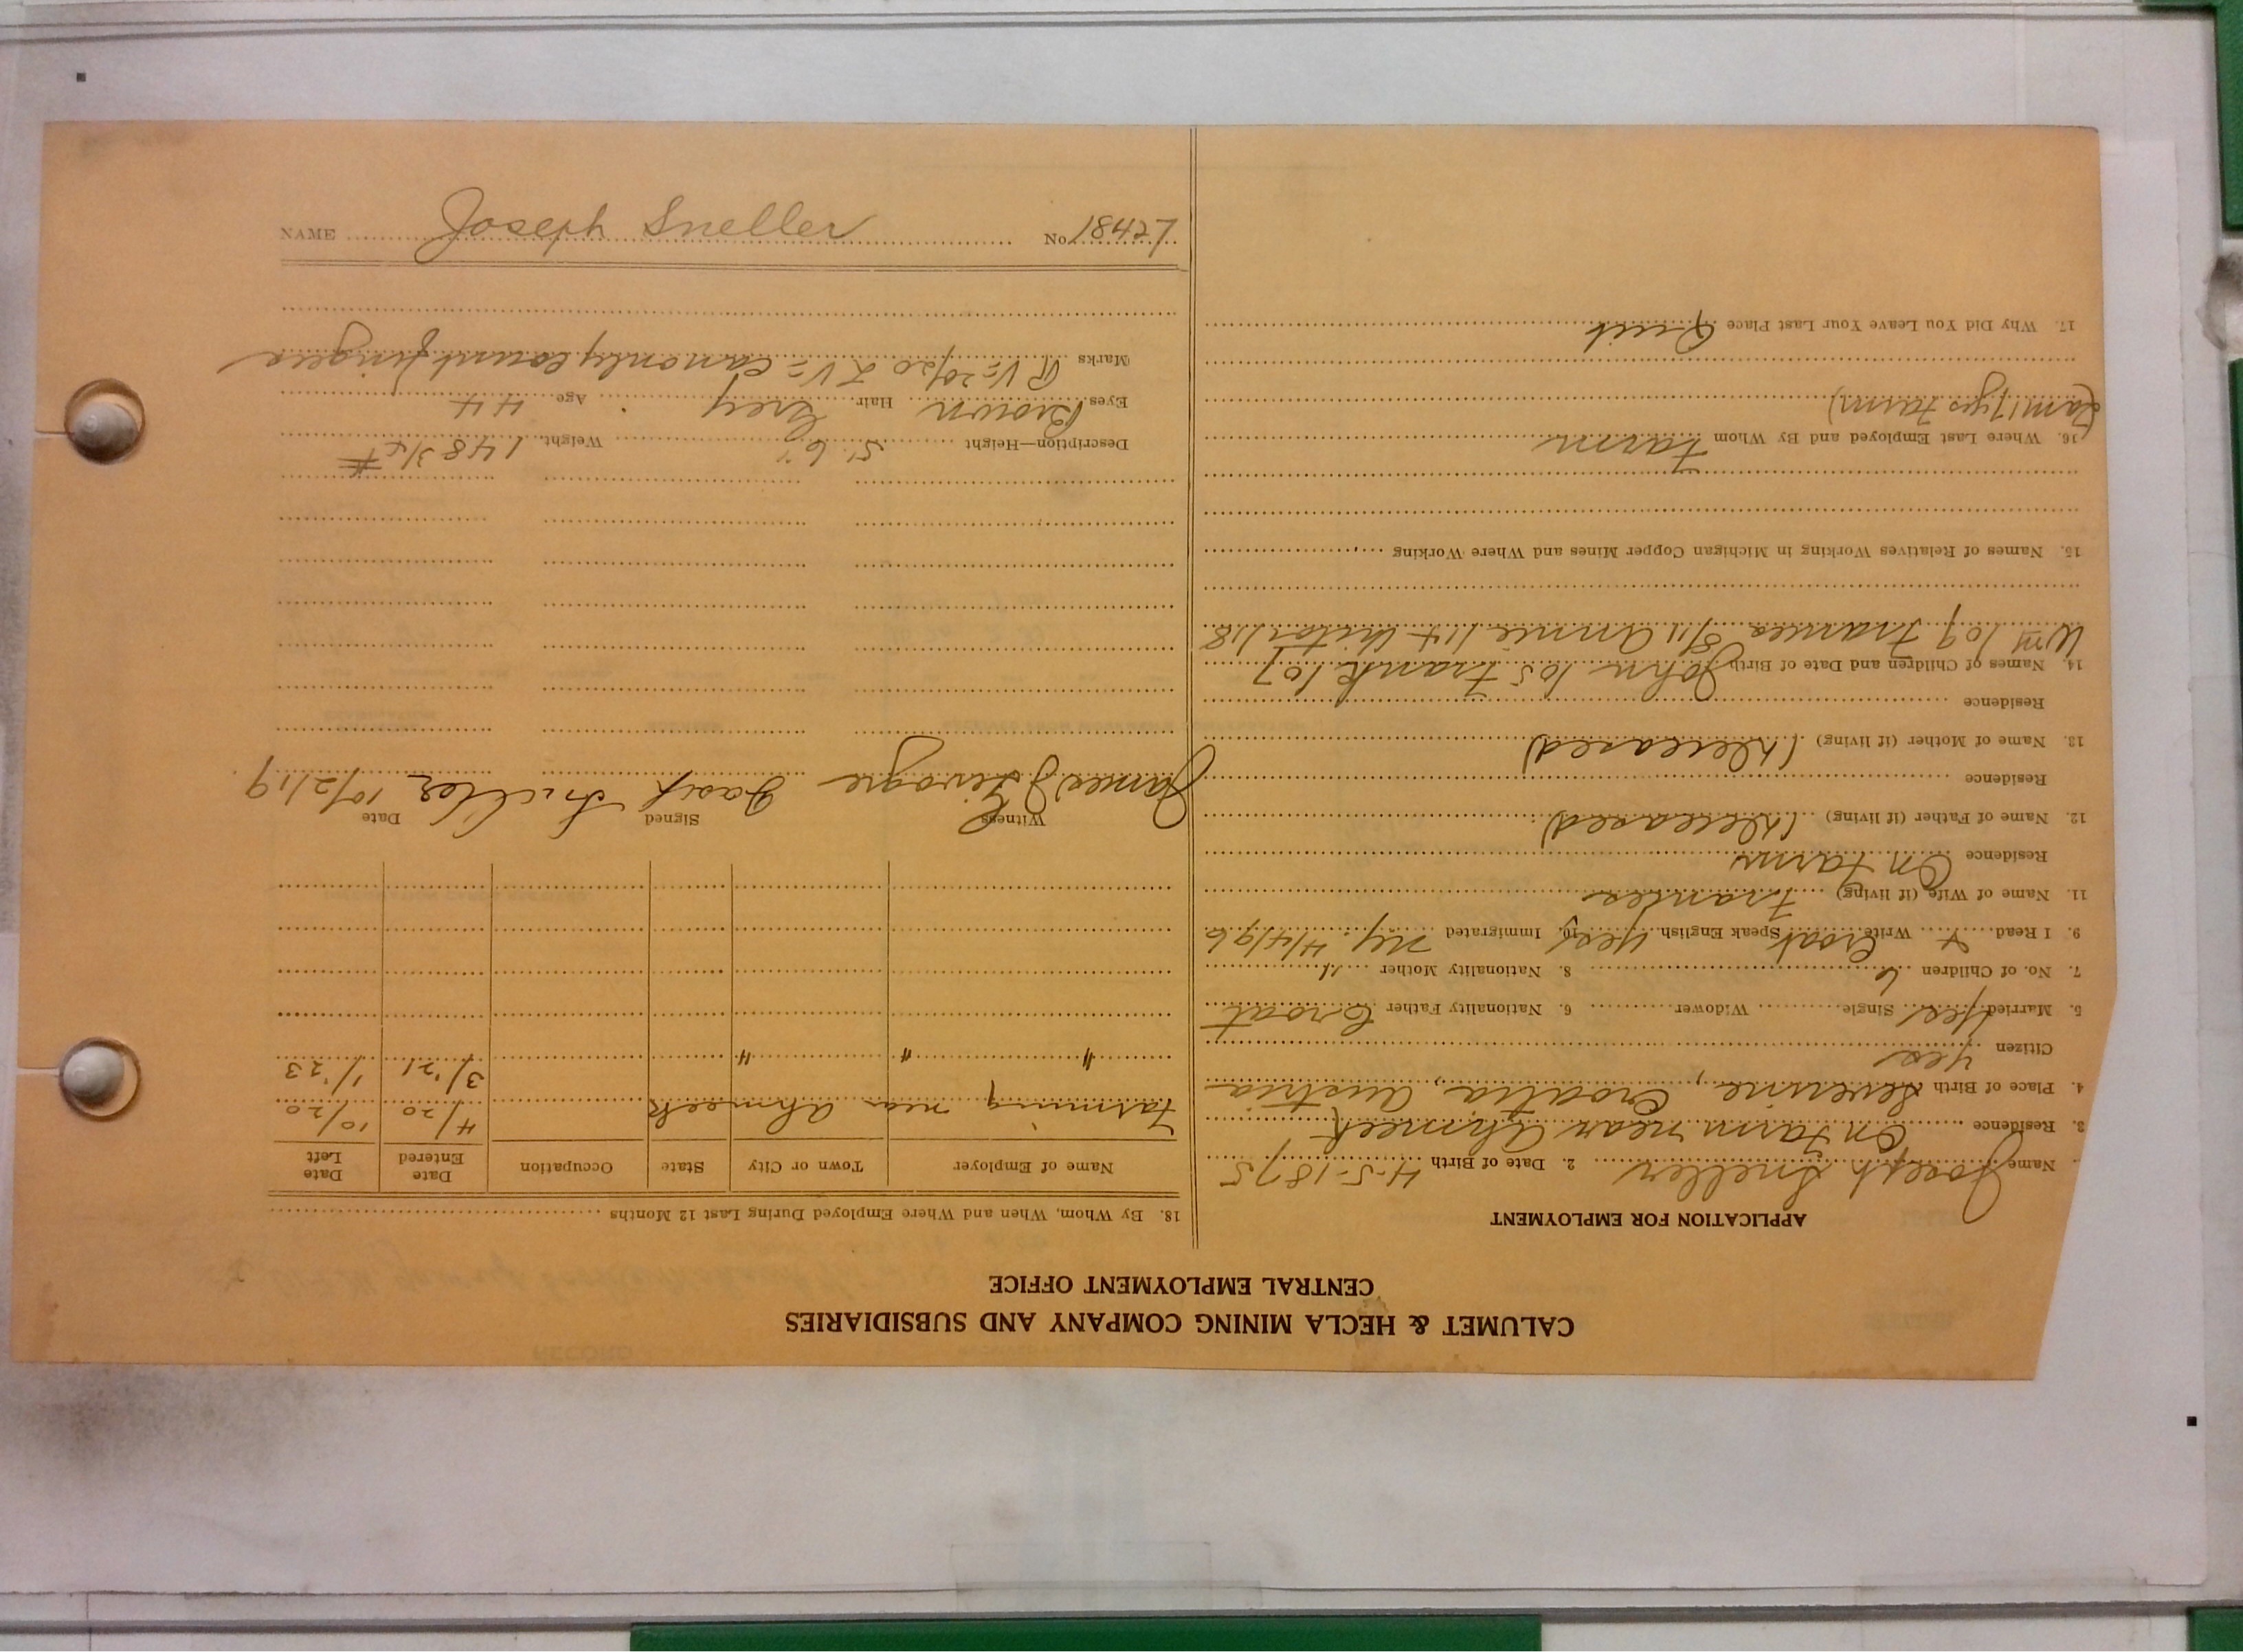 CALUMET & HECLA MINING COMPANY AND SUBSIDIARIES
CENTRAL EMPLOYMENT OFFICE
APPLICATION FOR EMPLOYMENT
Name Joseph Sneller 2. Date of Birth 4-5-1875
3. Residence On Farm near Ahmeek
4. Place of Birth Severine, Croatia, Austria
Citizen yes
5. Married yes Single Widower 6. Nationality Father Croat
7. No. of Children 6 8. Nationality Mother "
9. I Read x Write Croat Speak English yes 10. Immigrated NY. 4/4/96
11. Name of Wife (if living) Frances
Residence On Farm
12. Name of Father (if living) (Deceased)
Residence
13. Name of Mother (if living) (Deceased)
Residence
14. Names of Children and Date of Birth John /05 Frank /07
Wm /09 Frances 8/11 Annie /14 Victor /18
15. Names of Relatives Working in Michigan Copper Mines and Where Working
16. Where Last Employed and By Whom Farm
17 yrs farm)
17. Why Did You Leave Your Last Place Quit
18. By Whom, When and Where Employed During Last 12 Months
Name of Employer Town or City State Occupation Date Entered Date Left
Farming near Ahmeek 4/20 10/20
" " " 3/'21 1/'23
Witness Signed Date
James J Joseph Sneller 10/2/19
Description—Height 5' 6" Weight 148 3/4 #
Eyes Brown Hair Grey Age 44
Marks R V= 20/20 L V= can only count fingers
NAME Joseph Sneller No. 18427